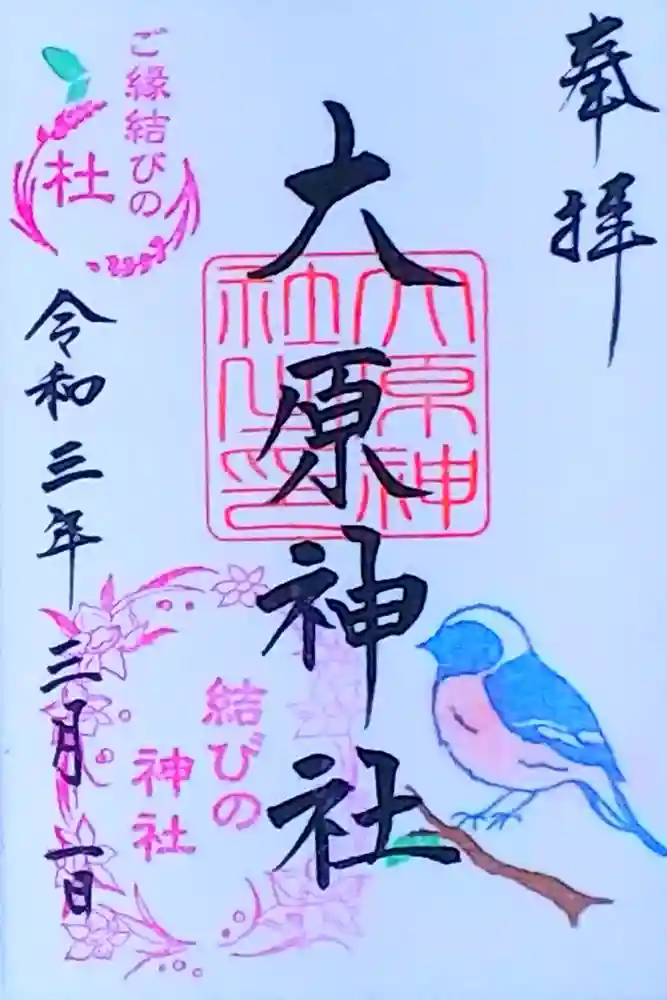 奉拝
大原神社
大原神
社之印
ご縁結びの
杜
令和三年三月一日
結びの
神社